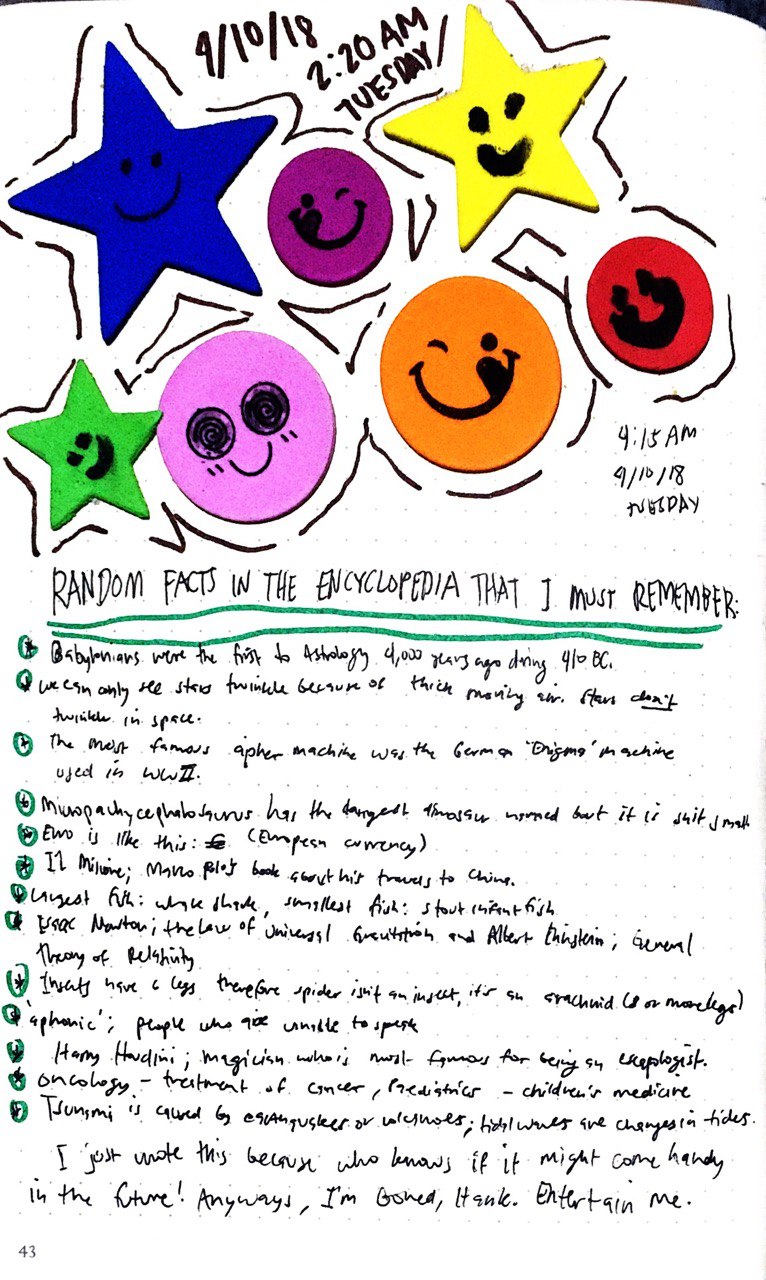 4/10/18
2:20 AM
TUESDAY
4:15 AM
4/10/18
TUESDAY
RANDOM FACTS IN THE ENCYCLOPEDIA THAT I MUST REMEMBER:
Babylonians were the first to Astrology 4,000 years ago during 410 BC.
we can only see stars twinkle because of thick moving air. Stars don't
twinkle in space.
The most famous cipher machine was the German 'Enigma' machine
used in WWII.
Micropachycephalosaurus has the longest dinosaur named but it is still small
Euro is like this: € (European currency)
Il Milione; Marco Polo's book about his travels to China.
Largest fish: whale shark, smallest fish: stout infantfish
Isaac Newton; the Law of Universal Gravitation and Albert Einstein; General
Theory of Relativity
Insects have 6 legs therefore spider isn't an insect, it's an arachnid (8 or more legs)
'aphonic'; people who are unable to speak
Harry Houdini; magician who is most famous for being an escapologist.
oncology - treatment of cancer, Paediatrics - children's medicine
Tsunami is caused by earthquakes or volcanoes; tidal waves are changes in tides.
I just wrote this because who knows if it might come handy
in the future! Anyways, I'm bored, Hank. Entertain me.
43